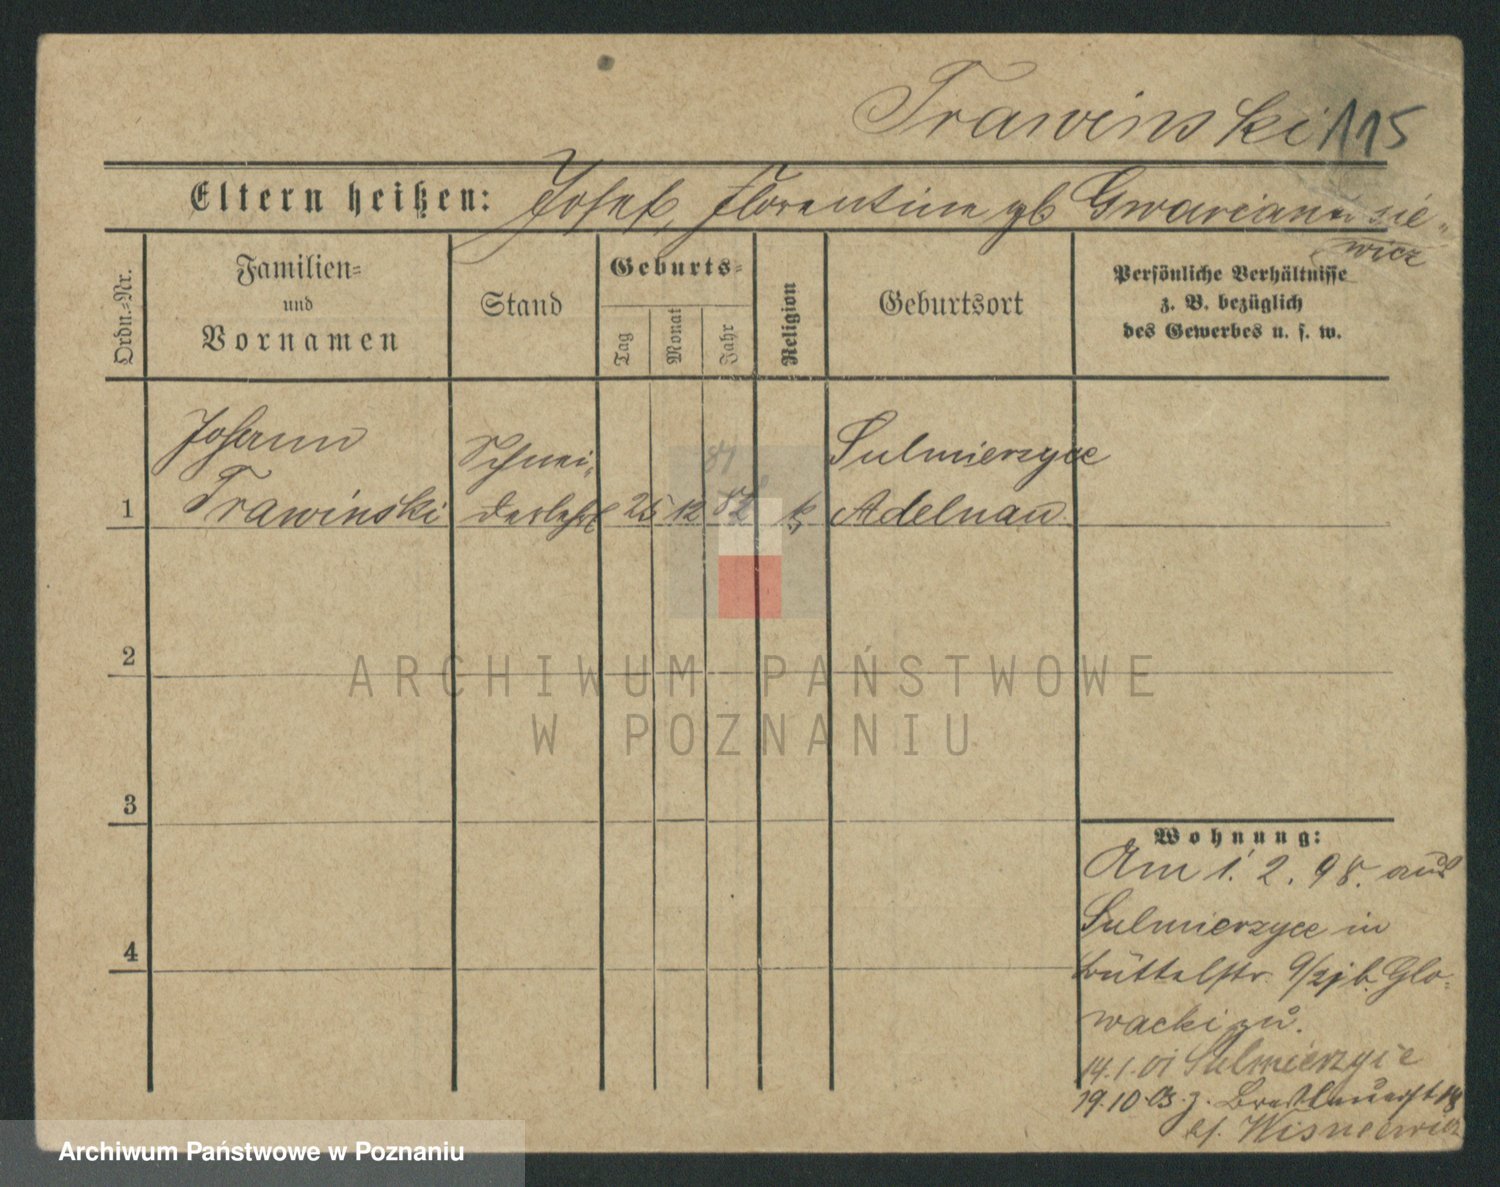 Trawinski 115
Eltern heißen: Josef, Florentine gb Gwarciannsie-
wicz
Ordn.-Nr.
Familien-
und
Vornamen
Stand
Geburts-
Tag
Monat
Jahr
Religion
Geburtsort
Persönliche Verhältnisse
z. B. bezüglich
des Gewerbes u. s. w.
Johann
Trawinski
Schnei-
derlehrl
81
25 12 82
k
Sulmierzyce
Adelnau
1
2
3
4
Wohnung:
Am 1. 2. 98. aus
Sulmierzyce in
Büttelstr. 9/2 jb. Glo-
wacki zu.
14.1.01 Sulmierzyce
19.10.03. z. Breslauerst 18
bf. Wisniewicz
ARCHIWUM PAŃSTWOWE
W POZNANIU
Archiwum Państwowe w Poznaniu